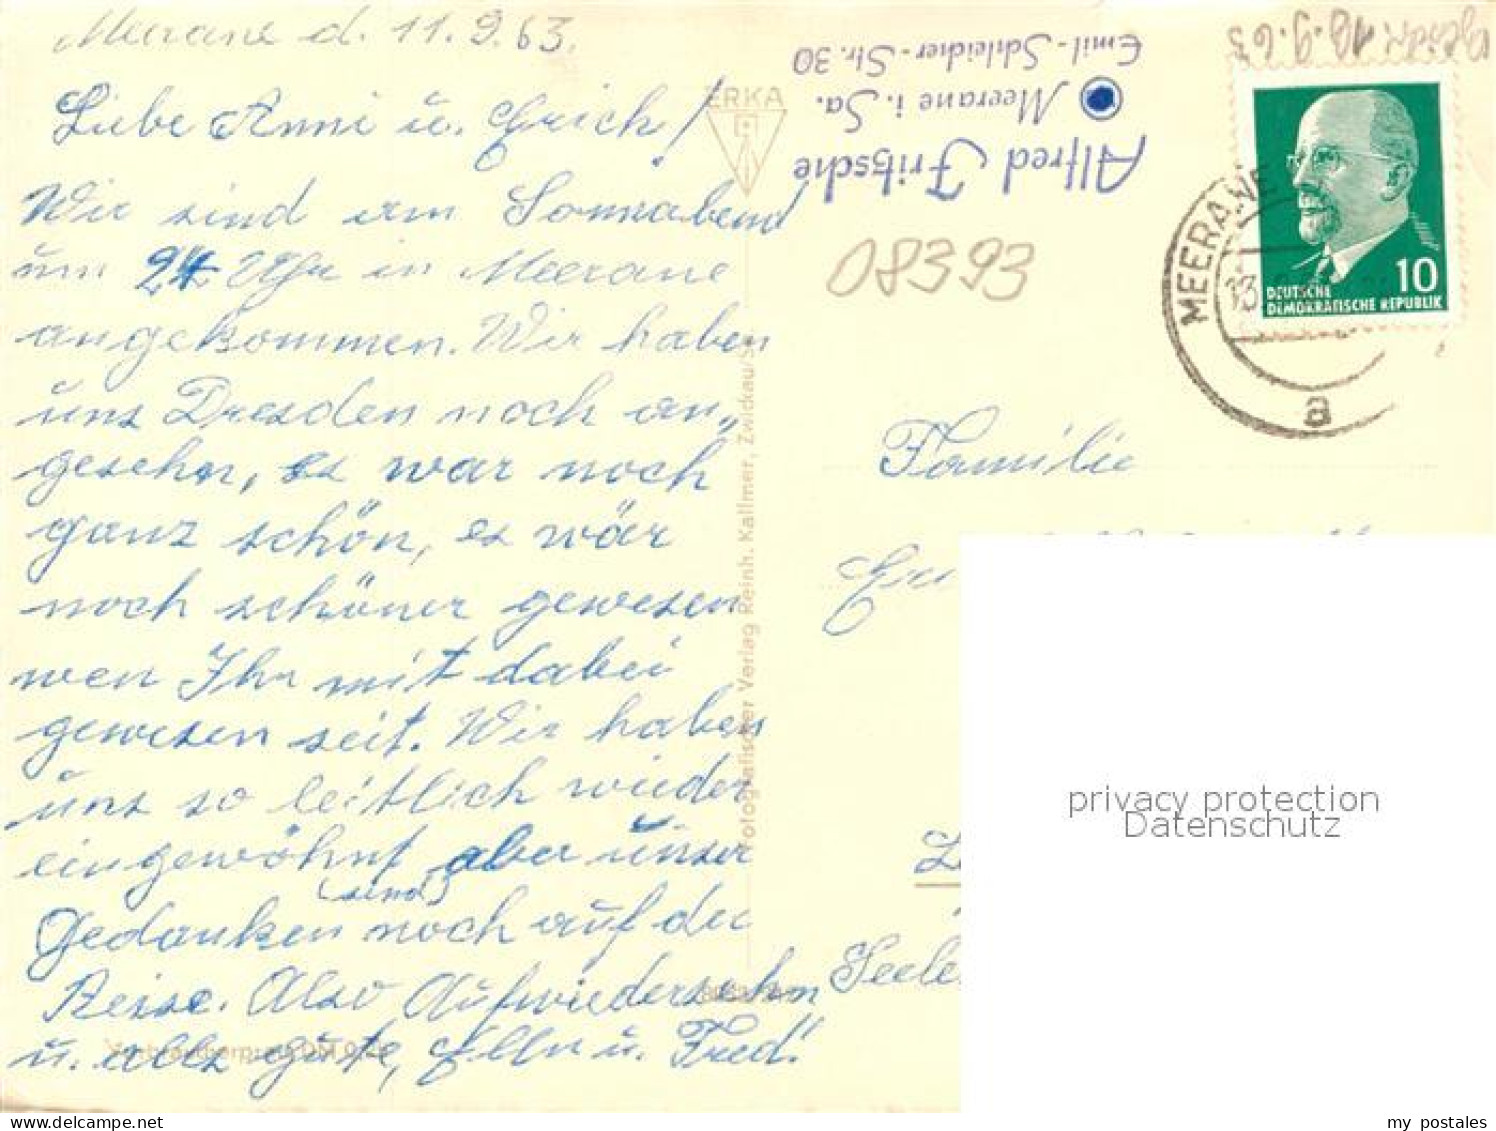 Meerane d. 11.9.63.
Liebe Anni u. Erich!
Wir sind am Sonnabend
um 24 Uhr in Meerane
angekommen. Wir haben
uns Dresden noch an„
gesehn, es war noch
ganz schön, es wär
noch schöner gewesen
wen Ihr mit dabei
gewesen seit. Wir haben
uns so leitlich wieder
eingewöhnt aber unser
(sind)
Gedanken noch auf der
Reise. Also Aufwiedersehn
u. alles Gute, Elln u. Fred!
ERKA
Fotografischer Verlag Reinh. Kallmer, Zwickau/Sa.
Alfred Fritzsche
Meerane i. Sa.
Emil-Schleidner-Str. 30
08393
19.9.63
MEERANE
13
a
10
DEUTSCHE
DEMOKRATISCHE REPUBLIK
Familie
Seele
privacy protection
Datenschutz
my postales